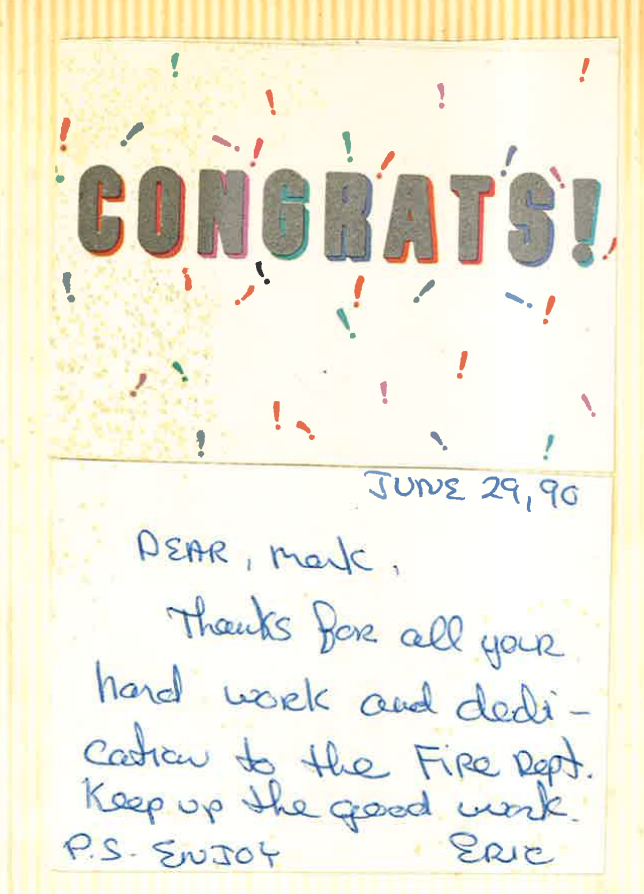 CONGRATS!
JUNE 29, 90
DEAR, Mark,
Thanks for all your
hard work and dedi-
cation to the Fire Dept.
Keep up the good work.
P.S. ENJOY ERIC